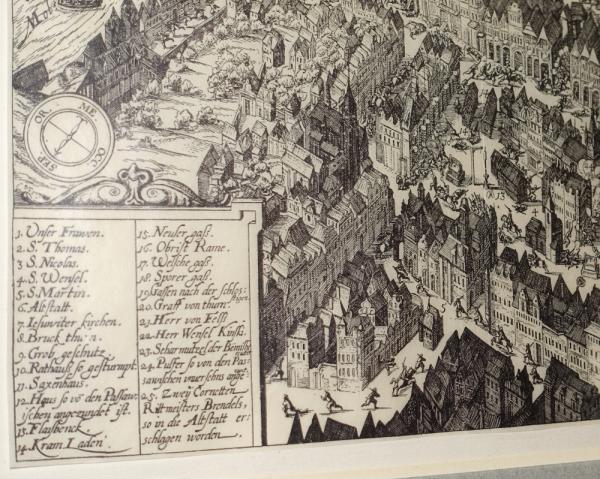 Mol
OR
ME
OCC
SEP
1. Unser Frawen.
2. S. Thomas.
3 S. Nicolas.
4. S. Wensel.
5. S. Martin.
6. Altstatt.
7. Iesuwiter kirchen.
8. Bruck thurn.
9. Grob geschutz.
10. Rathaus so gesturmpt.
11. Saxenhaus.
12. Haus so vō den Passaw
ischen angezundet ist.
13. Flaisbenck.
14. Kram Laden.
15. Neuser gass.
16. Obrist Rame.
17. Welsche gass.
18. Sporer gass.
19. Gassen nach der schlos:
stigen.
20. Graff von thurn.
21. Herr von Fels.
22. Herr Wensel Kinski.
23. Scharmutzel der
24. Pulfer so von den Pas
sawischen angst
25. Zweij Cornetten
Rittmeisters Brendels,
so in die Altstatt er:
schlagen worden.
13
22